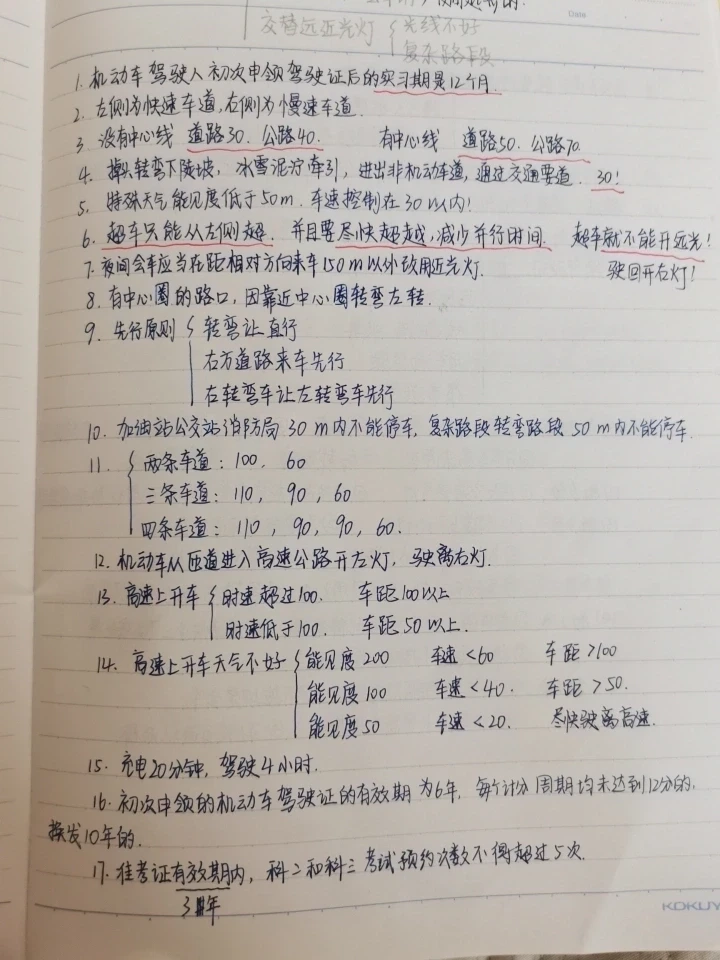 Date
交替远近光灯 { 光线不好
复杂路段
1. 机动车驾驶人初次申领驾驶证后的实习期是12个月.
2. 左侧为快速车道,右侧为慢速车道.
3. 没有中心线 道路30. 公路40. 有中心线 道路50. 公路70.
4. 掉头转弯下陡坡, 冰雪泥泞牵引, 进出非机动车道, 通过交通要道. 30!
5. 特殊天气能见度低于50m. 车速控制在30以内!
6. 超车只能从左侧超. 并且要尽快超越,减少并行时间. 超车就不能开远光!
7. 夜间会车应当在距相对方向来车150m以外改用近光灯. 驶回开右灯!
8. 有中心圈的路口, 因靠近中心圈转弯左转.
9. 先行原则 { 转弯让直行
右方道路来车先行
右转弯车让左转弯车先行
10. 加油站公交站消防局 30 m 内不能停车, 复杂路段转弯路段 50 m内不能停车.
11. { 两条车道: 100, 60
三条车道: 110, 90, 60
四条车道: 110, 90, 90, 60.
12. 机动车从匝道进入高速公路开左灯, 驶离右灯.
13. 高速上开车 { 时速超过100. 车距100以上
时速低于100. 车距50以上.
14. 高速上开车天气不好 { 能见度200 车速<60 车距>100
能见度100 车速<40. 车距>50.
能见度50 车速<20. 尽快驶离高速.
15. 充电20分钟, 驾驶4小时.
16. 初次申领的机动车驾驶证的有效期为6年, 每个计分周期均未达到12分的,
换发10年的.
17. 准考证有效期内, 科二和科三考试预约次数不得超过5次.
3年
KOKUY